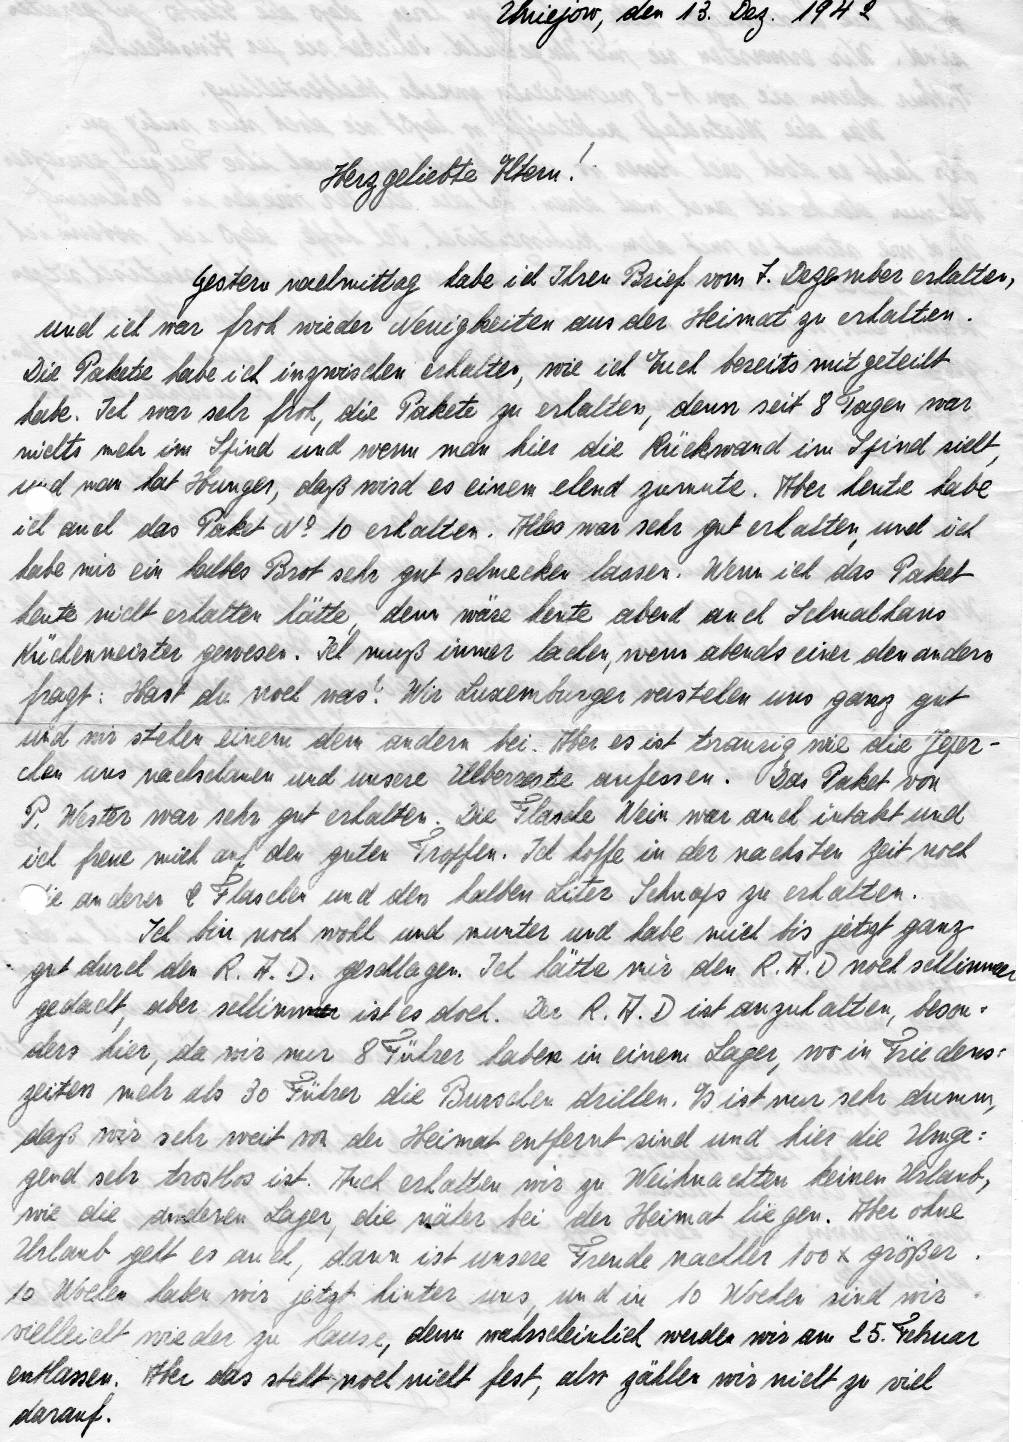 Uniejow, den 13. Dez. 1942
Herzgeliebte Eltern!
Gestern nachmittag habe ich Ihren Brief vom 7. Dezember erhalten,
und ich war froh wieder Neuigkeiten aus der Heimat zu erhalten.
Die Pakete habe ich inzwischen erhalten, wie ich Euch bereits mitgeteilt
habe. Ich war sehr froh, die Pakete zu erhalten, denn seit 8 Tagen war
nichts mehr im Spind und wenn man hier die Rückwand im Spind sieht,
und man hat Hunger, daß wird es einem elend zumute. Aber heute habe
ich auch das Paket No 10 erhalten. Alles war sehr gut erhalten, und ich
habe mir ein halbes Brot sehr gut schmecken lassen. Wenn ich das Paket
heute nicht erhalten hätte, dann wäre heute abend auch Schmalhans
Küchenmeister gewesen. Ich muß immer lachen, wenn abends einer den andern
fragt: Hast du noch was? Wir Luxemburger verstehen uns ganz gut
und wir stehen einem dem andern bei. Aber es ist traurig wie die
uns nachschauen und unsere Ueberreste aufessen. Das Paket von
P. Wester war sehr gut erhalten. Die Flasche Wein war auch intakt und
ich freue mich auf den guten Tropfen. Ich hoffe in der nachsten Zeit noch
die anderen 2 Flaschen und den halben Liter Schnaps zu erhalten.
Ich bin noch wohl und munter und habe mich bis jetzt ganz
gut durch den R. A. D. geschlagen. Ich hätte mir den R. A. D noch schlimmer
gedacht, aber schlimmer ist es doch. Der R. A. D ist anzuhalten, beson-
ders hier, da wir nur 8 Führer haben in einem Lager, wo in Friedens-
zeiten mehr als 30 Führer die Burschen drillen. Es ist nur sehr dumm,
daß wir sehr weit von der Heimat entfernt sind und hier die Umge-
gend sehr trostlos ist. Auch erhalten wir zu Weihnachten keinen Urlaub,
wie die anderen Lager, die näher bei der Heimat liegen. Aber ohne
Urlaub geht es auch, dann ist unsere Freude nachher 100 x größer.
10 Wochen haben wir jetzt hinter uns, und in 10 Wochen sind wir
vielleicht wieder zu hause, denn wahrscheinlich werden wir am 25. Februar
entlassen. Aber das steht noch nicht fest, also zählen wir nicht zu viel
darauf.